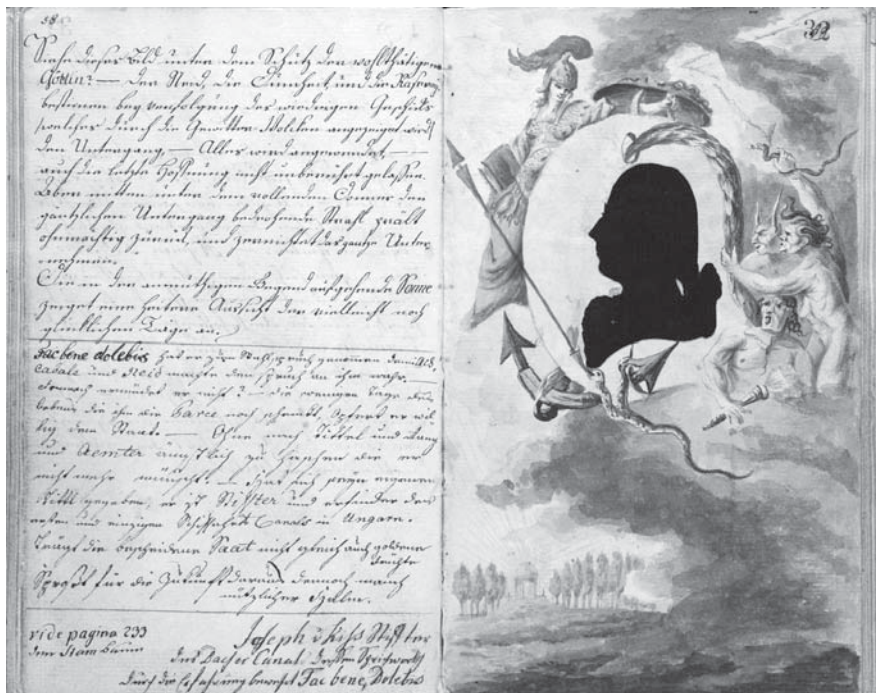 58
Siehe dieses Bild unter dem Schutz der wohlthätigen
Göttin? — Der Neid, die Dummheit, und die Raserey
bestimmen bey Verfolgung des wiedrigen Geschicks
/welches durch die Gewitter-Wolcken angezeiget wird/
den Untergang, — Alles wird angewendet, —
auch die letzte Hoffnung nicht unberührt gelassen.
Aber mitten unter dem rollenden Donner der
gäntzlichen Untergang bedrohende Strahl prält
ohnmächtig zurück, und zernichtet das gantze Unter
nehmen.
Die in der anmuthigen Gegend aufgehende Sonne
zeiget eine heitere Aussicht der vielleicht noch
glücklichen Täge an.
Fac bene dolebis hat er zum Wahlspruch genommen
Cabale und Neid machte den Spruch an ihm wahr. —
Dennoch ermüdet er nicht? — die wenigen Tage des
Lebens die ihm die Parce noch schenkt, opfert er wil
lig dem Staat. — Ohne nach Tittel und Rang
und Aemter ängstlich zu haschen die er
nicht mehr wünscht. — hat sich seyn eigenen
Tittl gegeben, er ist Stiffter und erfinder des
ersten und einzigen Schiffahrts Canals in Ungarn.
Trägt die bescheidene Saat nicht gleich auch goldene
Früchte
Sproßt für die Zukunft daraus dennoch manch
nützlicher Halm.
vide pagina 233
dem Stambaum
Joseph v Kiss Stiffter
des Bacser Canals dessen Sprichwort
durch die Erfahrung bewehrt Fac bene, Dolebis
32